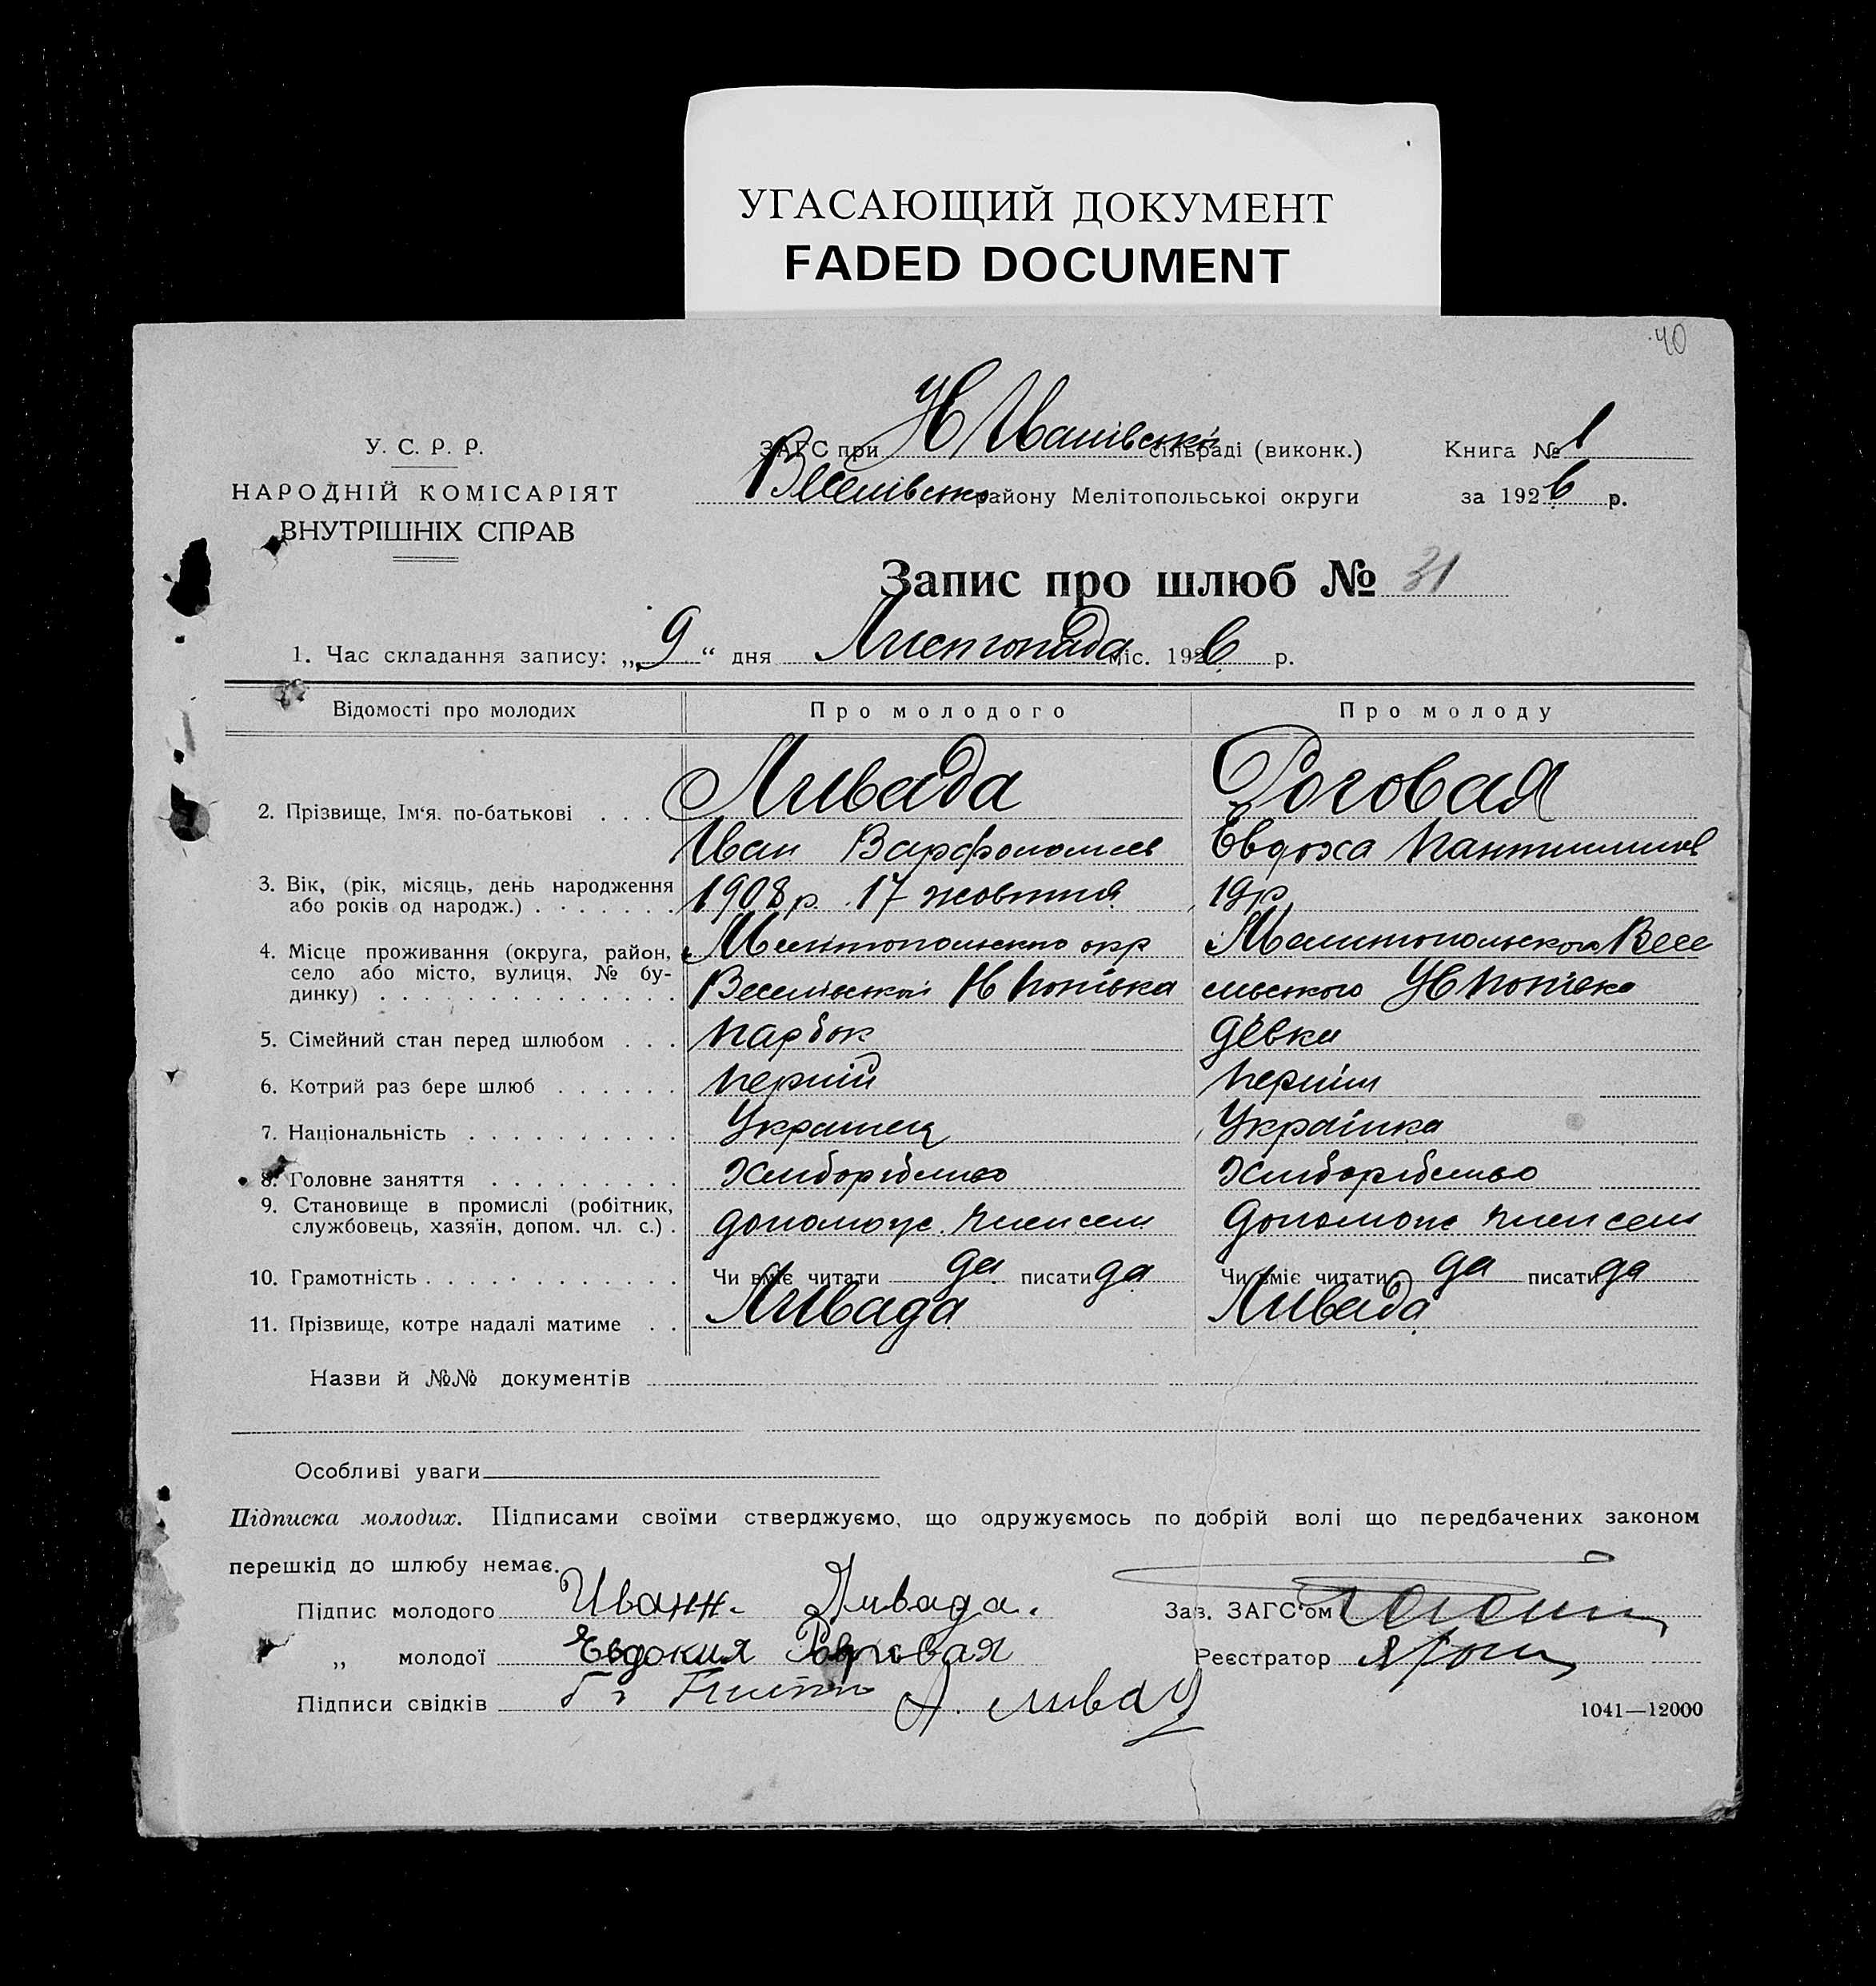 УГАСАЮЩИЙ ДОКУМЕНТ
FADED DOCUMENT
40
У. С. Р. Р.
НАРОДНІЙ КОМІСАРІЯТ
ВНУТРІШНІХ СПРАВ
ЗАГС при Н Иванівські сільраді (виконк.)
Веселівсько району Мелітопольської округи
Книга № 1
за 1926 р.
Запис про шлюб № 31
1. Час складання запису: „9“ дня Листопада міс. 1926 р.
Відомості про молодих Про молодого Про молоду
2. Прізвище, Ім'я. по-батькові . . . Ливада Роговая
Иван Варфоломеев Евдоха
3. Вік, (рік, місяць, день народження
або років од народж.) . . . . . . . 1908 р. 17 жовтня 19 р
4. Місце проживання (округа, район,
село або місто, вулиця, № бу-
динку) . . . . . . . . . . . . . . .
Мелітопольсько окр Мелитопольского Весе
Веселівськои Н Попівка сльського Н Попівка
5. Сімейний стан перед шлюбом . . . парбок девка
6. Котрий раз бере шлюб . . . . . . перший
7. Національність . . . . . . . . . . Украинец Українка
8. Головне заняття . . . . . . . . . Хлиборобство Хлиборобство
9. Становище в промислі (робітник,
службовець, хазяїн, допом. чл. с.) . допомож. член сем допомож член сем
10. Грамотність . . . . . . . . . . . . Чи вміє читати да писати да Чи вміє читати да писати да
11. Прізвище, котре надалі матиме . . Ливада Ливада
Назви й №№ документів
Особливі уваги
Підписка молодих. Підписами своїми стверджуємо, що одружуємось по добрій волі що передбачених законом
перешкід до шлюбу немає.
Підпис молодого Иванн. Ливада.
„ молодої Евдокия
Підписи свідків
Зав. ЗАГС'ом
Реєстратор
1041—12000